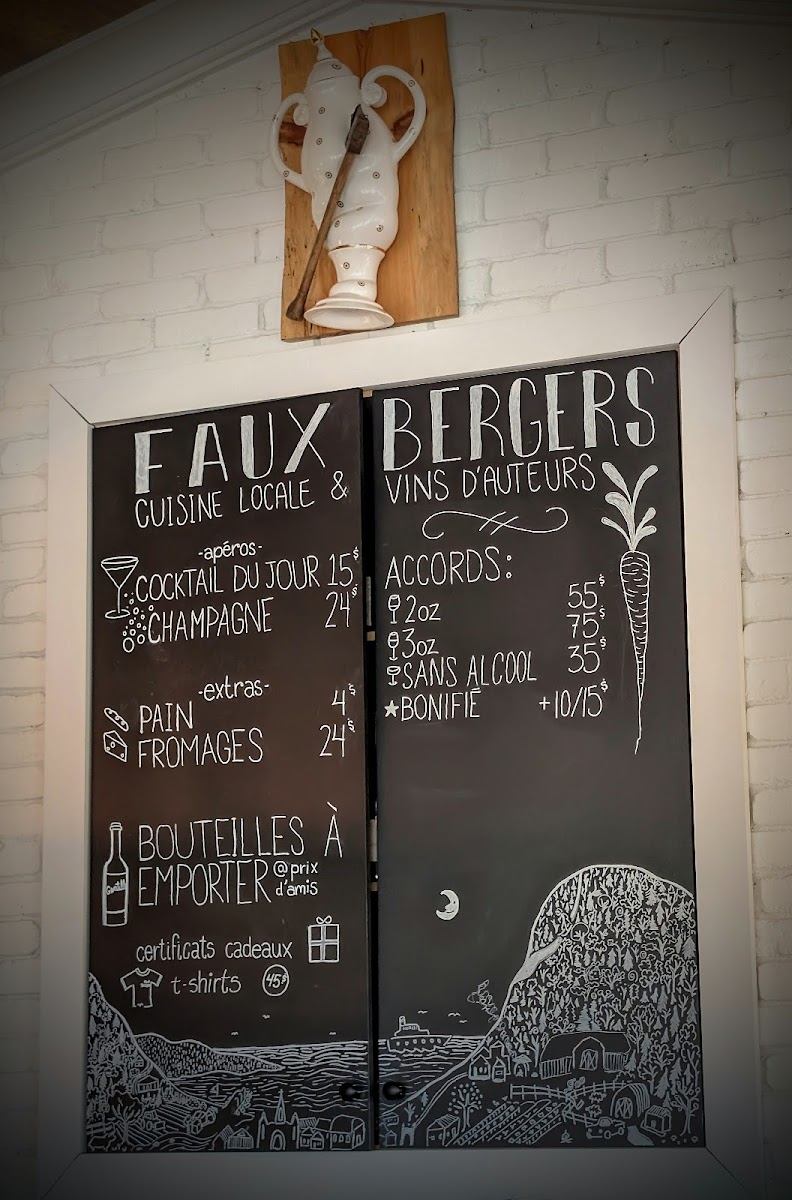 FAUX BERGERS
CUISINE LOCALE & VINS D'AUTEURS
-apéros-
COCKTAIL DU JOUR 15$
CHAMPAGNE 24$
-extras-
PAIN 4$
FROMAGES 24$
BOUTEILLES À
EMPORTER @prix
d'amis
certificats cadeaux
t-shirts 45$
ACCORDS:
2oz 55$
3oz 75$
SANS ALCOOL 35$
★BONIFIÉ +10/15$